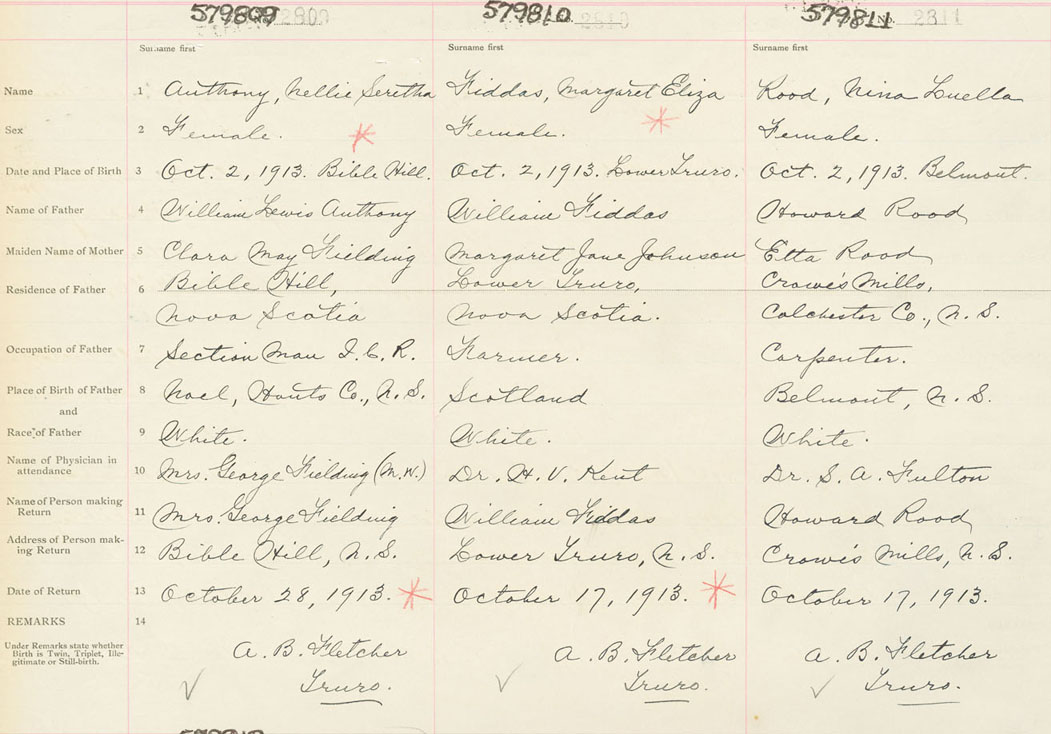 579809 579810 579811
No. 2311
Surname first Surname first Surname first
Name 1 Anthony, Nellie Seretha Fiddas, Margaret Eliza Rood, Nina Luella
Sex 2 Female. Female. Female.
Date and Place of Birth 3 Oct. 2, 1913. Bible Hill. Oct. 2, 1913. Lower Truro. Oct. 2, 1913. Belmont.
Name of Father 4 William Lewis Anthony William Fiddas Howard Rood
Maiden Name of Mother 5 Clara May Fielding Margaret Jane Johnson Etta Rood
Residence of Father 6 Bible Hill, Lower Truro, Crowe's Mills,
Nova Scotia Nova Scotia. Colchester Co., N.S.
Occupation of Father 7 Section Man I.C.R. Farmer. Carpenter.
Place of Birth of Father 8 Noel, Hants Co., N.S. Scotland Belmont, N.S.
and
Race of Father 9 White. White. White.
Name of Physician in
attendance 10 Mrs. George Fielding (M.W.) Dr. H. V. Kent Dr. S. A. Fulton
Name of Person making
Return 11 Mrs. George Fielding William Fiddas Howard Rood
Address of Person mak-
ing Return 12 Bible Hill, N.S. Lower Truro, N.S. Crowe's Mills, N.S.
Date of Return 13 October 28, 1913. October 17, 1913. October 17, 1913.
REMARKS 14
Under Remarks state whether
Birth is Twin, Triplet, Ille-
gitimate or Still-birth.
A. B. Fletcher A. B. Fletcher A. B. Fletcher
Truro. Truro. Truro.